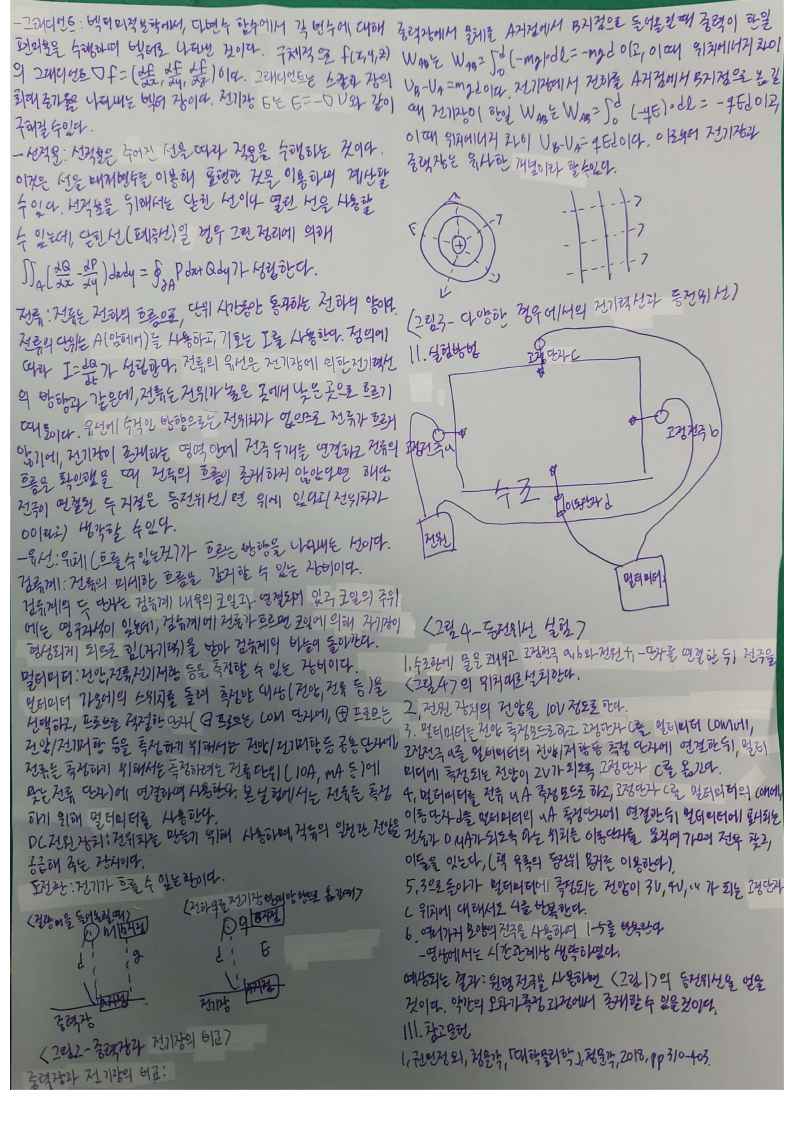 -그래디언트: 벡터미적분학에서, 다변수 함수에서 각 변수에 대해
편미분을 수행하여 벡터로 나타낸 것이다. 구체적으로 f(x,y,z)
의 그래디언트 ∇f=(df/dx, df/dy, df/dz)이다. 그래디언트는 스칼라 장의
최대 증가율을 나타내는 벡터 장이다. 전기장 E는 E=-∇U와 같이
구해질 수 있다.
-선적분: 선적분은 주어진 선을 따라 적분을 수행하는 것이다.
이것은 선을 매개변수를 이용해 표현한 것을 이용하여 계산할
수 있다. 선적분을 위해서는 닫힌 선이나 열린 선을 사용할
수 있는데, 닫힌 선(폐곡선)일 경우 그린 정리에 의해
∬A(dQ/dx - dP/dy)dxdy = ∮∂A Pdx+Qdy가 성립한다.
전류: 전류는 전하의 흐름으로, 단위 시간동안 통과하는 전하의 양이다.
전류의 단위는 A(암페어)를 사용하고, 기호는 I를 사용한다. 정의에
따라 I=dQ/dt가 성립한다. 전류의 유선은 전기장에 의한 전기력선
의 방향과 같은데, 전류는 전위가 높은 곳에서 낮은 곳으로 흐르기
때문이다. 유선에 수직인 방향으로는 전위차가 없으므로 전류가 흐르지
않기에, 전기장이 존재하는 영역 안에 전극 두개를 연결하고 전류의
흐름을 확인했을 때 전류의 흐름이 존재하지 않았다면 해당
전극이 연결된 두 지점은 등전위선/면 위에 있다고(전위차가
0이라고) 생각할 수 있다.
-유선: 유체(흐를 수 있는 것)가 흐르는 방향을 나타내는 선이다.
검류계: 전류의 미세한 흐름을 감지할 수 있는 장비이다.
검류계의 두 단자는 검류계 내부의 코일과 연결되어 있고 코일의 주위
에는 영구자석이 있는데, 검류계에 전류가 흐르면 코일에 의해 자기장이
형성되게 되므로 힘(자기력)을 받아 검류계의 바늘이 돌아간다.
멀티미터: 전압, 전류, 전기저항 등을 측정할 수 있는 장비이다.
멀티미터 가운데의 스위치를 돌려 측정할 대상(전압, 전류 등)을
선택하고, 프로브를 적절한 단자(⊖프로브는 COM 단자에, ⊕프로브는
전압/전기저항 등을 측정하기 위해서는 전압/전기저항 등 공용 단자에,
전류를 측정하기 위해서는 측정하려는 전류 단위(10A, mA 등)에
맞는 전류 단자)에 연결하여 사용한다. 본 실험에서는 전류를 측정
하기 위해 멀티미터를 사용한다.
DC전원장치: 전위차를 만들기 위해 사용하며, 직류의 일정한 전압을
공급해 주는 장치이다.
도전판: 전기가 흐를 수 있는 판이다.
<질량 m을 들어올릴 때>
m B지점
d
g
A지점
중력장
q B지점
d
E
A지점
전기장
<그림2-중력장과 전기장의 비교>
중력장과 전기장의 비교:
중력장에서 물체를 A지점에서 B지점으로 들어올릴 때 중력이 한 일
W_AB는 W_AB=∫₀ᵈ(-mg)·dl=-mgd이고, 이때 위치에너지 차이
U_B-U_A=mgd이다. 전기장에서 전하를 A지점에서 B지점으로 옮길
때 전기장이 한일 W_AB는 W_AB=∫₀ᵈ(-qE)·dl = -qEd이고,
이때 위치에너지 차이 U_B-U_A=qEd이다. 이로부터 전기장과
중력장은 유사한 개념이라 할 수 있다.
+
<그림3-다양한 경우에서의 전기력선과 등전위선>
II. 실험방법
고정단자 c
고정전극 a
고정전극 b
수조
이동단자 d
전원
멀티미터
<그림4-등전위선 실험>
1. 수조판에 물을 채우고 고정전극 a,b와 전원 +,-단자를 연결한 뒤, 전극을
<그림4>의 위치대로 설치한다.
2. 전원 장치의 전압을 10V 정도로 한다.
3. 멀티미터는 전압 측정모드로 하고 고정단자 C를 멀티미터 COM에,
고정전극 a를 멀티미터의 전압/저항 등 측정 단자에 연결한 뒤, 멀티
미터에 측정되는 전압이 2V가 되도록 고정단자 C를 옮긴다.
4. 멀티미터를 전류 uA 측정 모드로 하고, 고정단자 C를 멀티미터의 COM에,
이동단자 d를 멀티미터의 uA 측정단자에 연결한 뒤 멀티미터에 표시되는
전류가 0uA가 되도록 하는 위치를 이동단자를 움직여 가며 전부 찾고,
이들을 잇는다.
5. 3으로 돌아가 멀티미터에 측정되는 전압이 3V, 4V, … 가 되는 고정단자
C 위치에 대해서도 4를 반복한다.
6. 여러가지 모양의 전극을 사용하여 1-5를 반복한다
-영상에서는 시간관계상 생략하였다.
예상되는 결과: 원형 전극을 사용하면 <그림1>의 등전위선을 얻을
것이다. 약간의 오차가 측정 과정에서 존재할 수 있을 것이다.
III. 참고문헌
1. 권민정 외, 청문각, 「대학물리학」, 청문각, 2018, pp 310-403.